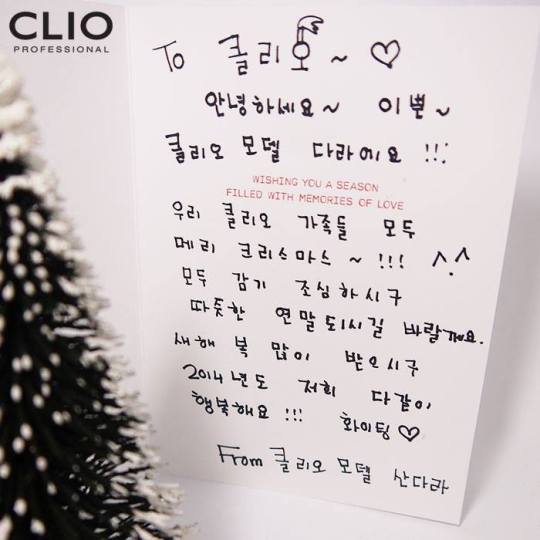 CLIO
PROFESSIONAL
To 클리오 ~ ♡
안녕하세요~ 이쁜~
클리오 모델 다라에요 !!!
WISHING YOU A SEASON
FILLED WITH MEMORIES OF LOVE
우리 클리오 가족들 모두
메리 크리스마스 ~ !!! ^.^
모두 감기 조심하시구
따듯한 연말 되시길 바랄게요.
새해 복 많이 받으시구
2014년도 저희 다같이
행복해요 !!! 화이팅♡
From 클리오 모델 산다라